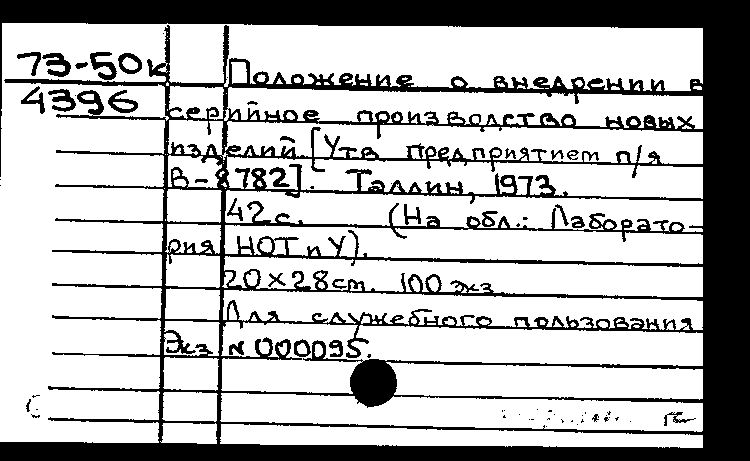 73-50к
4396
Положение о внедрении в
серийное производство новых
изделий [Утв предприятием п/я
В-8782]. Таллин, 1973.
42 с. (На обл.: Лаборато-
рия НОТ и У).
20×28 см. 100 экз
Для служебного пользования
Экз № 000095.